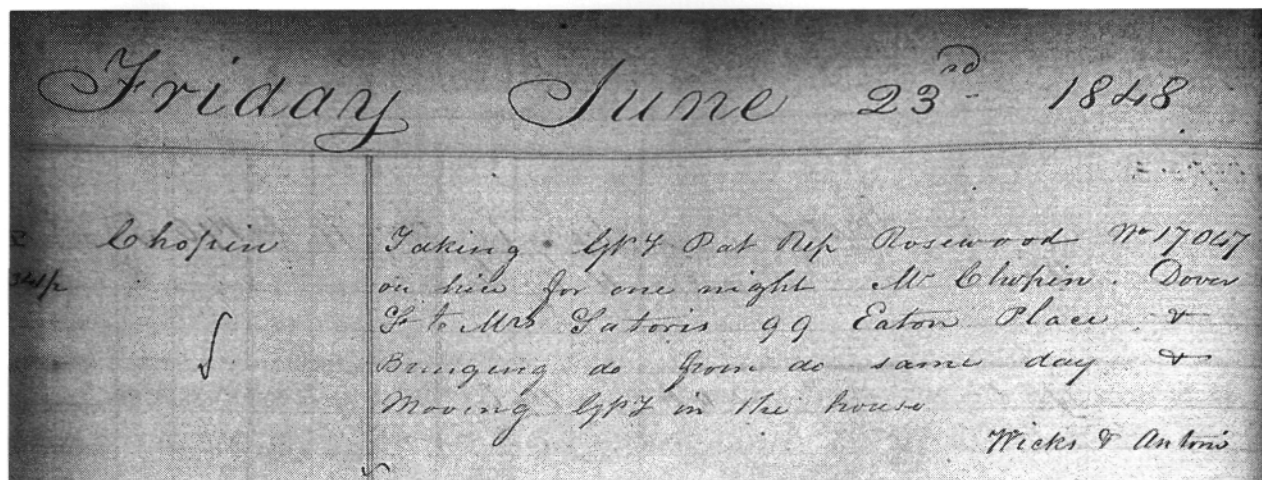 Friday June 23rd 1848
Chopin
Taking GPF Pat Rep Rosewood No 17047
on hire for one night Mr Chopin. Dover
St to Mrs Satoris 99 Eaton Place &
Bringing do from do same day &
Moving GPF in the house
Wicks & Antoni